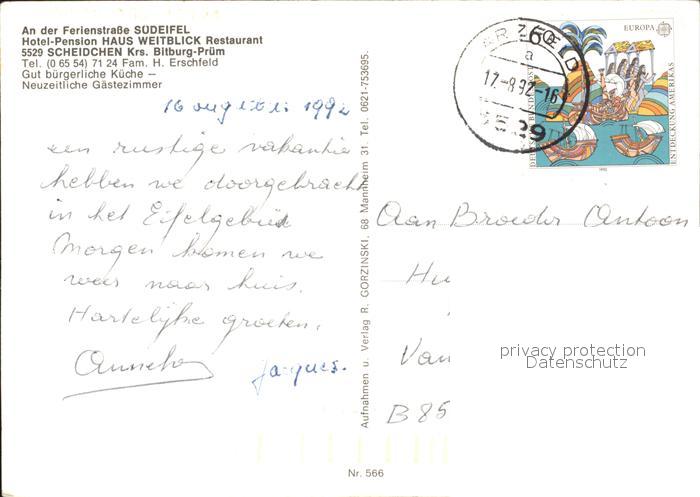 An der Ferienstraße SÜDEIFEL
Hotel-Pension HAUS WEITBLICK Restaurant
5529 SCHEIDCHEN Krs. Bitburg-Prüm
Tel. (0 65 54) 71 24 Fam. H. Erschfeld
Gut bürgerliche Küche –
Neuzeitliche Gästezimmer
1992
een rustige vakantie
hebben we doorgebracht
in het Eifelgebied
Morgen komen we
weer naar huis.
Hartelijke groeten.
Jacques.
Aufnahmen u. Verlag R. GORZINSKI, 68 Mannheim 31. Tel. 0621-753695.
Nr. 566
ARZFELD
a
17.-8.92-16
5529
60
EUROPA
DEUTSCHE BUNDESPOST
ENTDECKUNG AMERIKAS
1992
Aan Broeder Antoon
Hu
Van
B 85
privacy protection
Datenschutz